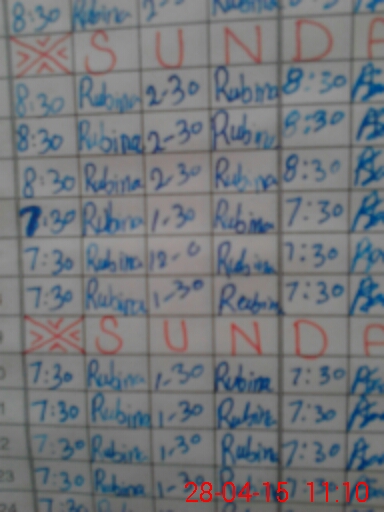 8:30 Rubina 2-30 Rubina 8:30
S U N D A
8:30 Rubina 2-30 Rubina 8:30
8:30 Rubina 2-30 Rubina 8:30
8:30 Rubina 2-30 Rubina 8:30
7:30 Rubina 1-30 Rubina 7:30
7:30 Rubina 12-0 Rubina 7:30
7:30 Rubina 1-30 Rubina 7:30
S U N D A
7:30 Rubina 1-30 Rubina 7:30
7:30 Rubina 1-30 Rubina 7:30
7:30 Rubina 1-30 Rubina 7:30
23 7:30 Rubina 1-30 7:30
24 7:30
28-04-15 11:10